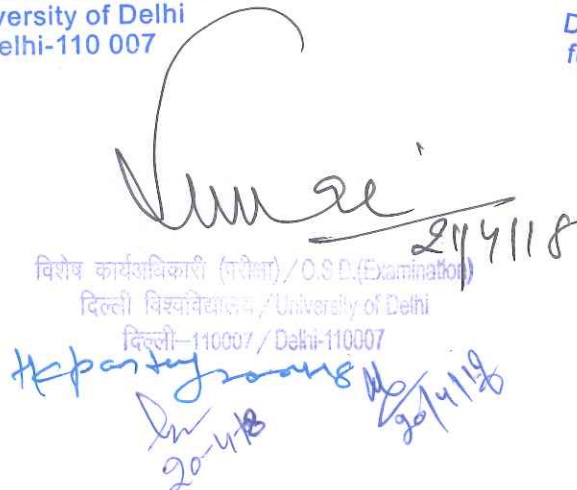 versity of Delhi
elhi-110 007
D
f
21/4/18
विशेष कार्यअधिकारी (परीक्षा) / O.S.D.(Examination)
दिल्ली विश्वविद्यालय / University of Delhi
दिल्ली-110007 / Delhi-110007
20/4/18
20-4-18